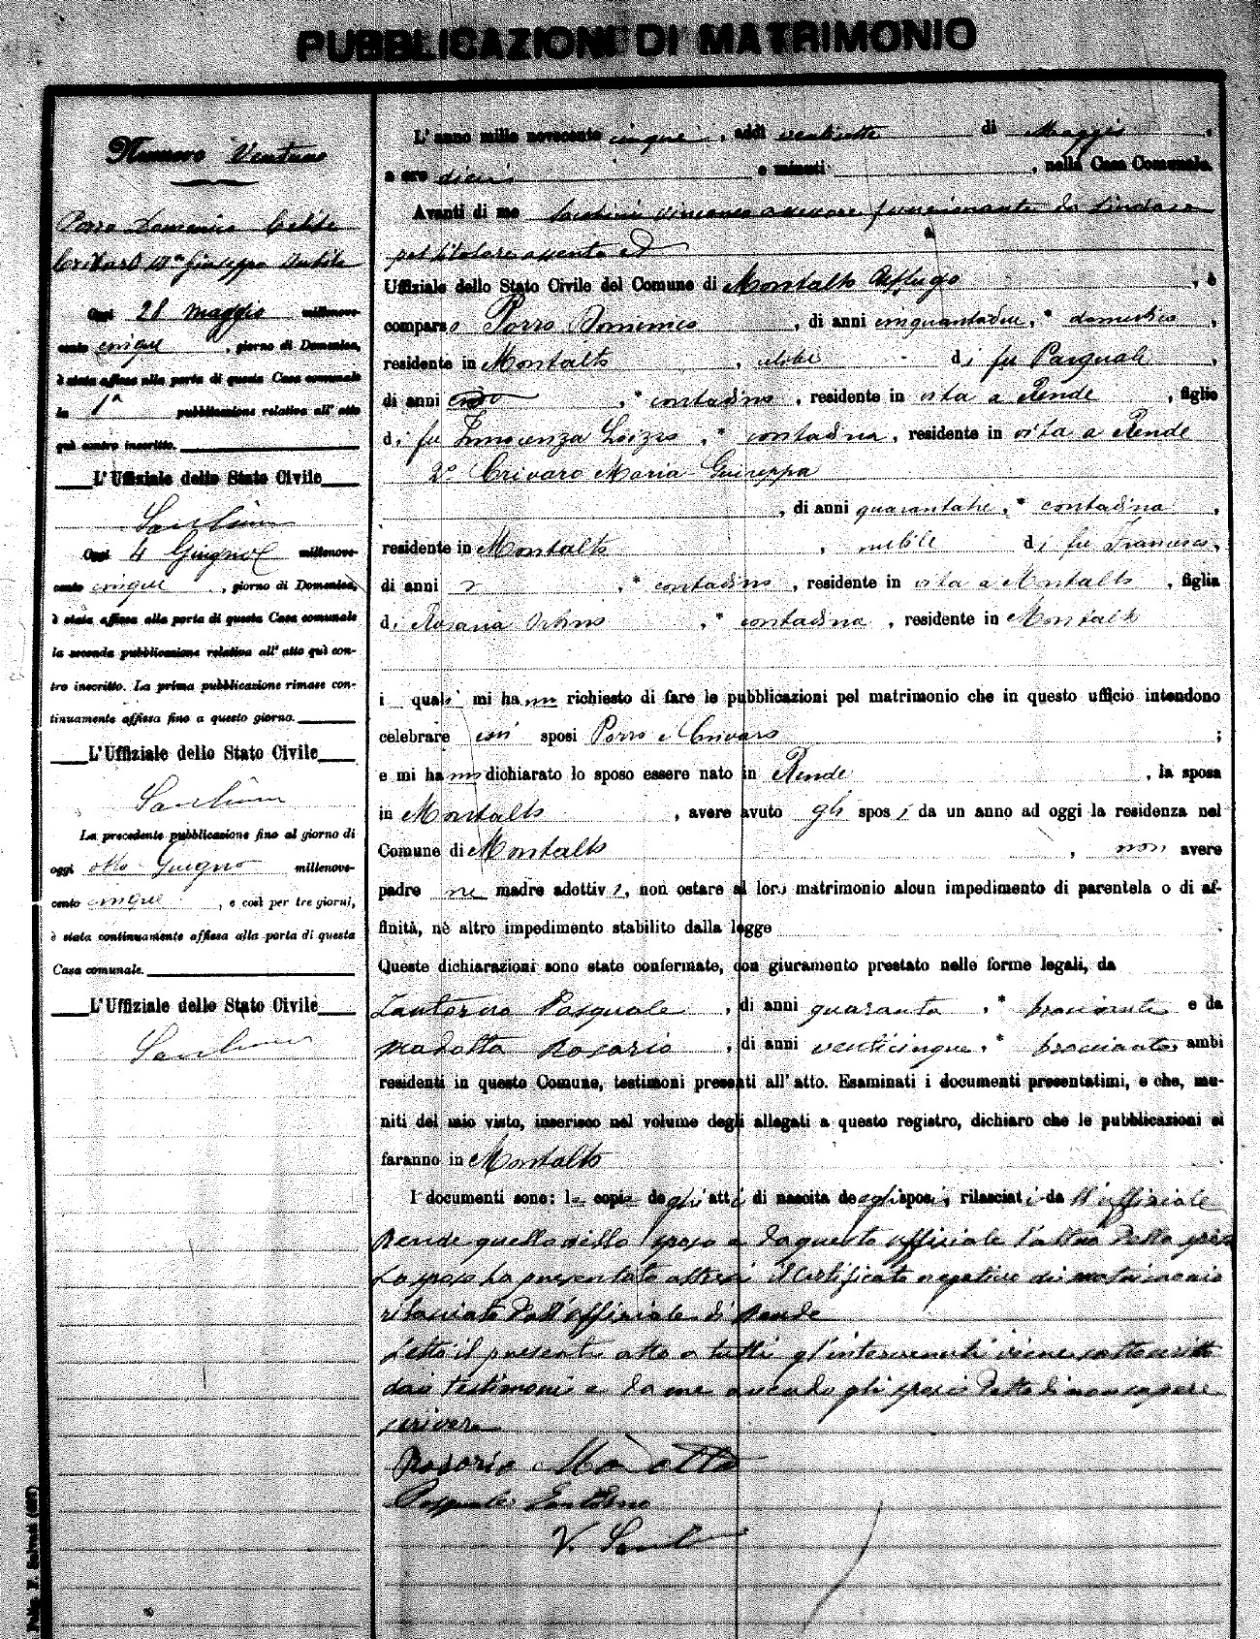 PUBBLICAZIONI DI MATRIMONIO
Numero Ventuno
Porro Domenico Celibe
Crivaro Mª Giuseppa Nubile
Oggi 28 maggio millenove-
cento cinque, giorno di Domenica,
è stata affissa alla porta di questa Casa comunale
la 1ª pubblicazione relativa all' atto
quì contro inscritto.
L'Uffiziale dello Stato Civile
Oggi 4 Giugno millenove-
cento cinque, giorno di Domenica,
è stata affissa alla porta di questa Casa comunale
la seconda pubblicazione relativa all' atto quì con-
tro inscritto. La prima pubblicazione rimase con-
tinuamente affissa fino a questo giorno.
L'Uffiziale dello Stato Civile
La precedente pubblicazione fino al giorno di
oggi otto Giugno millenove-
cento cinque, e così per tre giorni,
è stata continuamente affissa alla porta di questa
Casa comunale.
L'Uffiziale dello Stato Civile
L' anno mille novecento cinque, addì ventisette di Maggio,
a ore dieci e minuti , nella Casa Comunale.
Avanti di me Vincenzo assessore funzionante da Sindaco
pel titolare assente ed
Uffiziale dello Stato Civile del Comune di Montalto Uffugo, è
comparso Porro Domenico, di anni cinquantadue, * domestico,
residente in Montalto, celibe di fu Pasquale,
di anni , * contadino, residente in vita a Rende, figlio
di fu Innocenza , * contadina, residente in vita a Rende
2º Crivaro Maria Giuseppa
, di anni quarantatre, * contadina,
residente in Montalto, nubile di fu Francesco,
di anni , * contadino, residente in vita a Montalto, figlia
di Rosaria , * contadina, residente in Montalto
i quali mi hanno richiesto di fare le pubblicazioni pel matrimonio che in questo ufficio intendono
celebrare essi sposi Porro e Crivaro ;
e mi hanno dichiarato lo sposo essere nato in Rende, la sposa
in Montalto, avere avuto gli sposi da un anno ad oggi la residenza nel
Comune di Montalto, non avere
padre ne madre adottivi, non ostare al loro matrimonio alcun impedimento di parentela o di af-
finità, nè altro impedimento stabilito dalla legge
Queste dichiarazioni sono state confermate, con giuramento prestato nelle forme legali, da
Pasquale, di anni quaranta, * bracciante e da
Madotta Rosario, di anni venticinque, * bracciante, ambi
residenti in questo Comune, testimoni presenti all' atto. Esaminati i documenti presentatimi, e che, mu-
niti del mio visto, inserisco nel volume degli allegati a questo registro, dichiaro che le pubblicazioni si
faranno in Montalto
I documenti sono: le copie degli atti di nascita degli sposi, rilasciati da l'uffiziale
Rende quello dello sposo e da questo uffiziale l'altro della sposa
Lo sposo ha presentato altresì il certificato negativo di matrimonio
rilasciato dall'uffiziale di Rende
Letto il presente atto a tutti gl'intervenuti viene sottoscritto
dai testimoni e da me avendo gli sposi detto di non sapere
scrivere
Rosario Madotta
Pasquale
V.